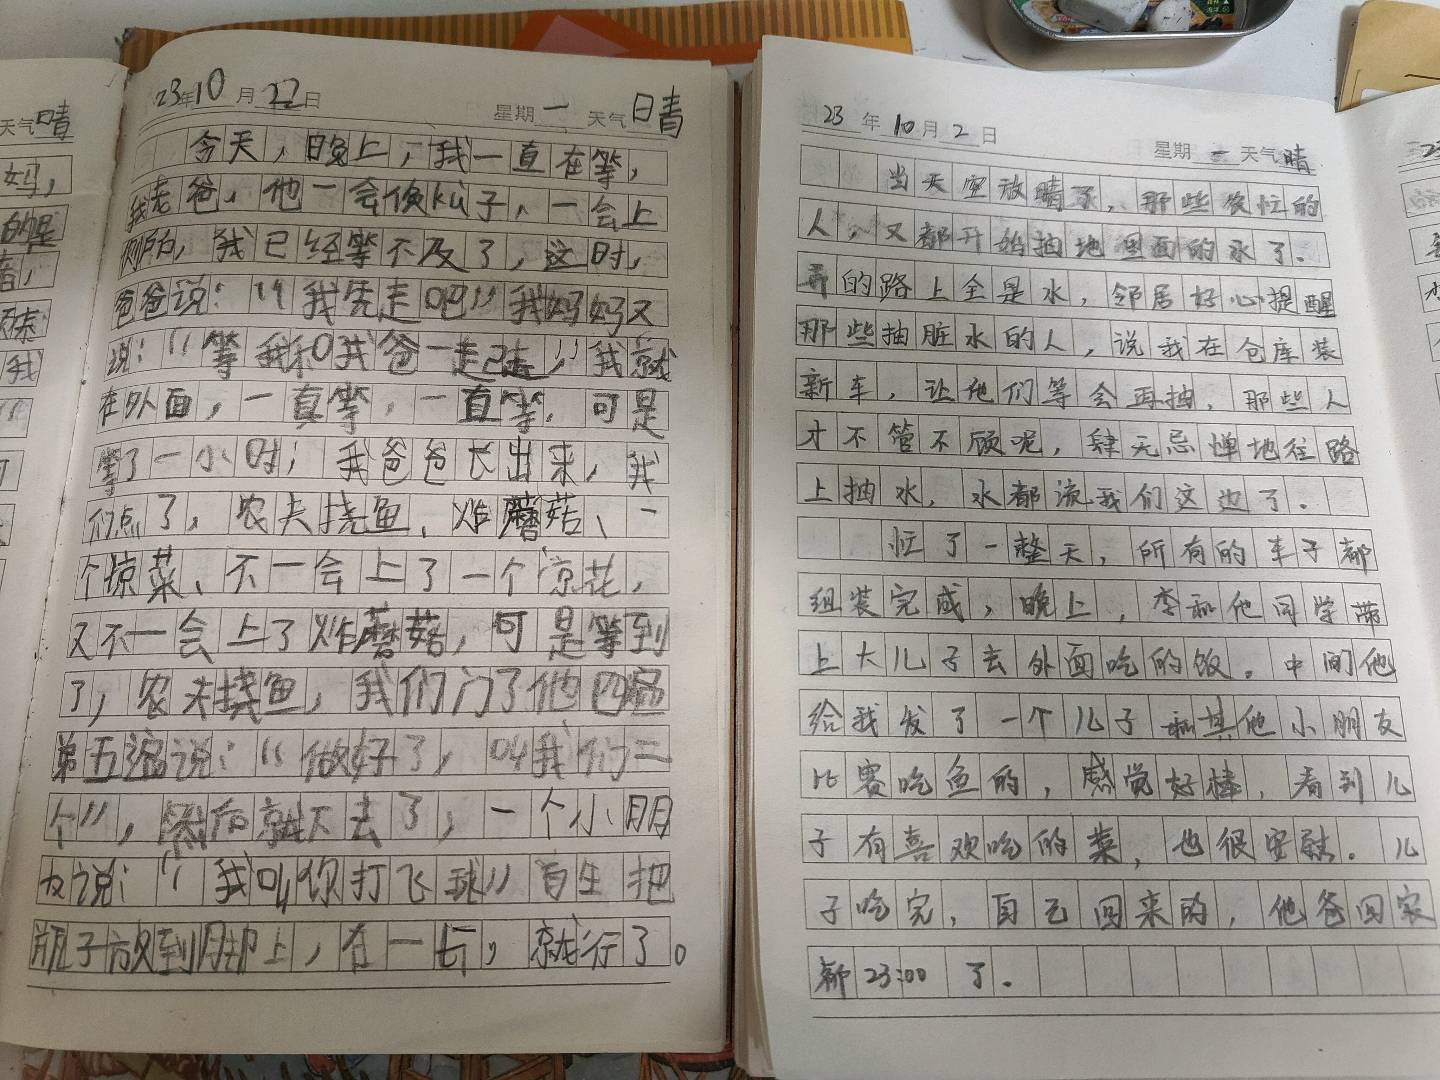 天气晴
妈，
23年10月22日 星期一 天气日青
今天，晚上，我一直在等，
我老爸，他一会换kù子，一会上
厕所，我已经等不及了，这时，
爸爸说：“我先走吧”我妈妈又
说：“等我和我爸一起走”我就
在外面，一真等，一直等，可是
等了一小时，我爸爸长出来，我
们点了，农夫挠鱼、炸蘑菇、一
个凉菜、不一会上了一个凉花，
又不一会上了炸蘑菇，可是等到
了，农夫挠鱼，我们门了他四遍
第五遍说：“做好了，叫我们二
个”，然后就下去了，一个小朋
友说：“我叫你打飞球”首先把
瓶子放到脚上，在一后，就行了。
23年10月2日 星期一天气晴
当天空放晴了，那些农忙的
人，又都开始抽地里面的水了。
弄的路上全是水，邻居好心提醒
那些抽脏水的人，说我在仓库装
新车，让他们等会再抽，那些人
才不管不顾呢，肆无忌惮地往路
上抽水，水都流我们这边了。
忙了一整天，所有的车子都
组装完成，晚上，李和他同学带
上大儿子去外面吃的饭。中间他
给我发了一个儿子和其他小朋友
比赛吃鱼的，感觉好棒，看到儿
子有喜欢吃的菜，也很安慰。儿
子吃完，自己回来的，他爸回家
都23:00 了。